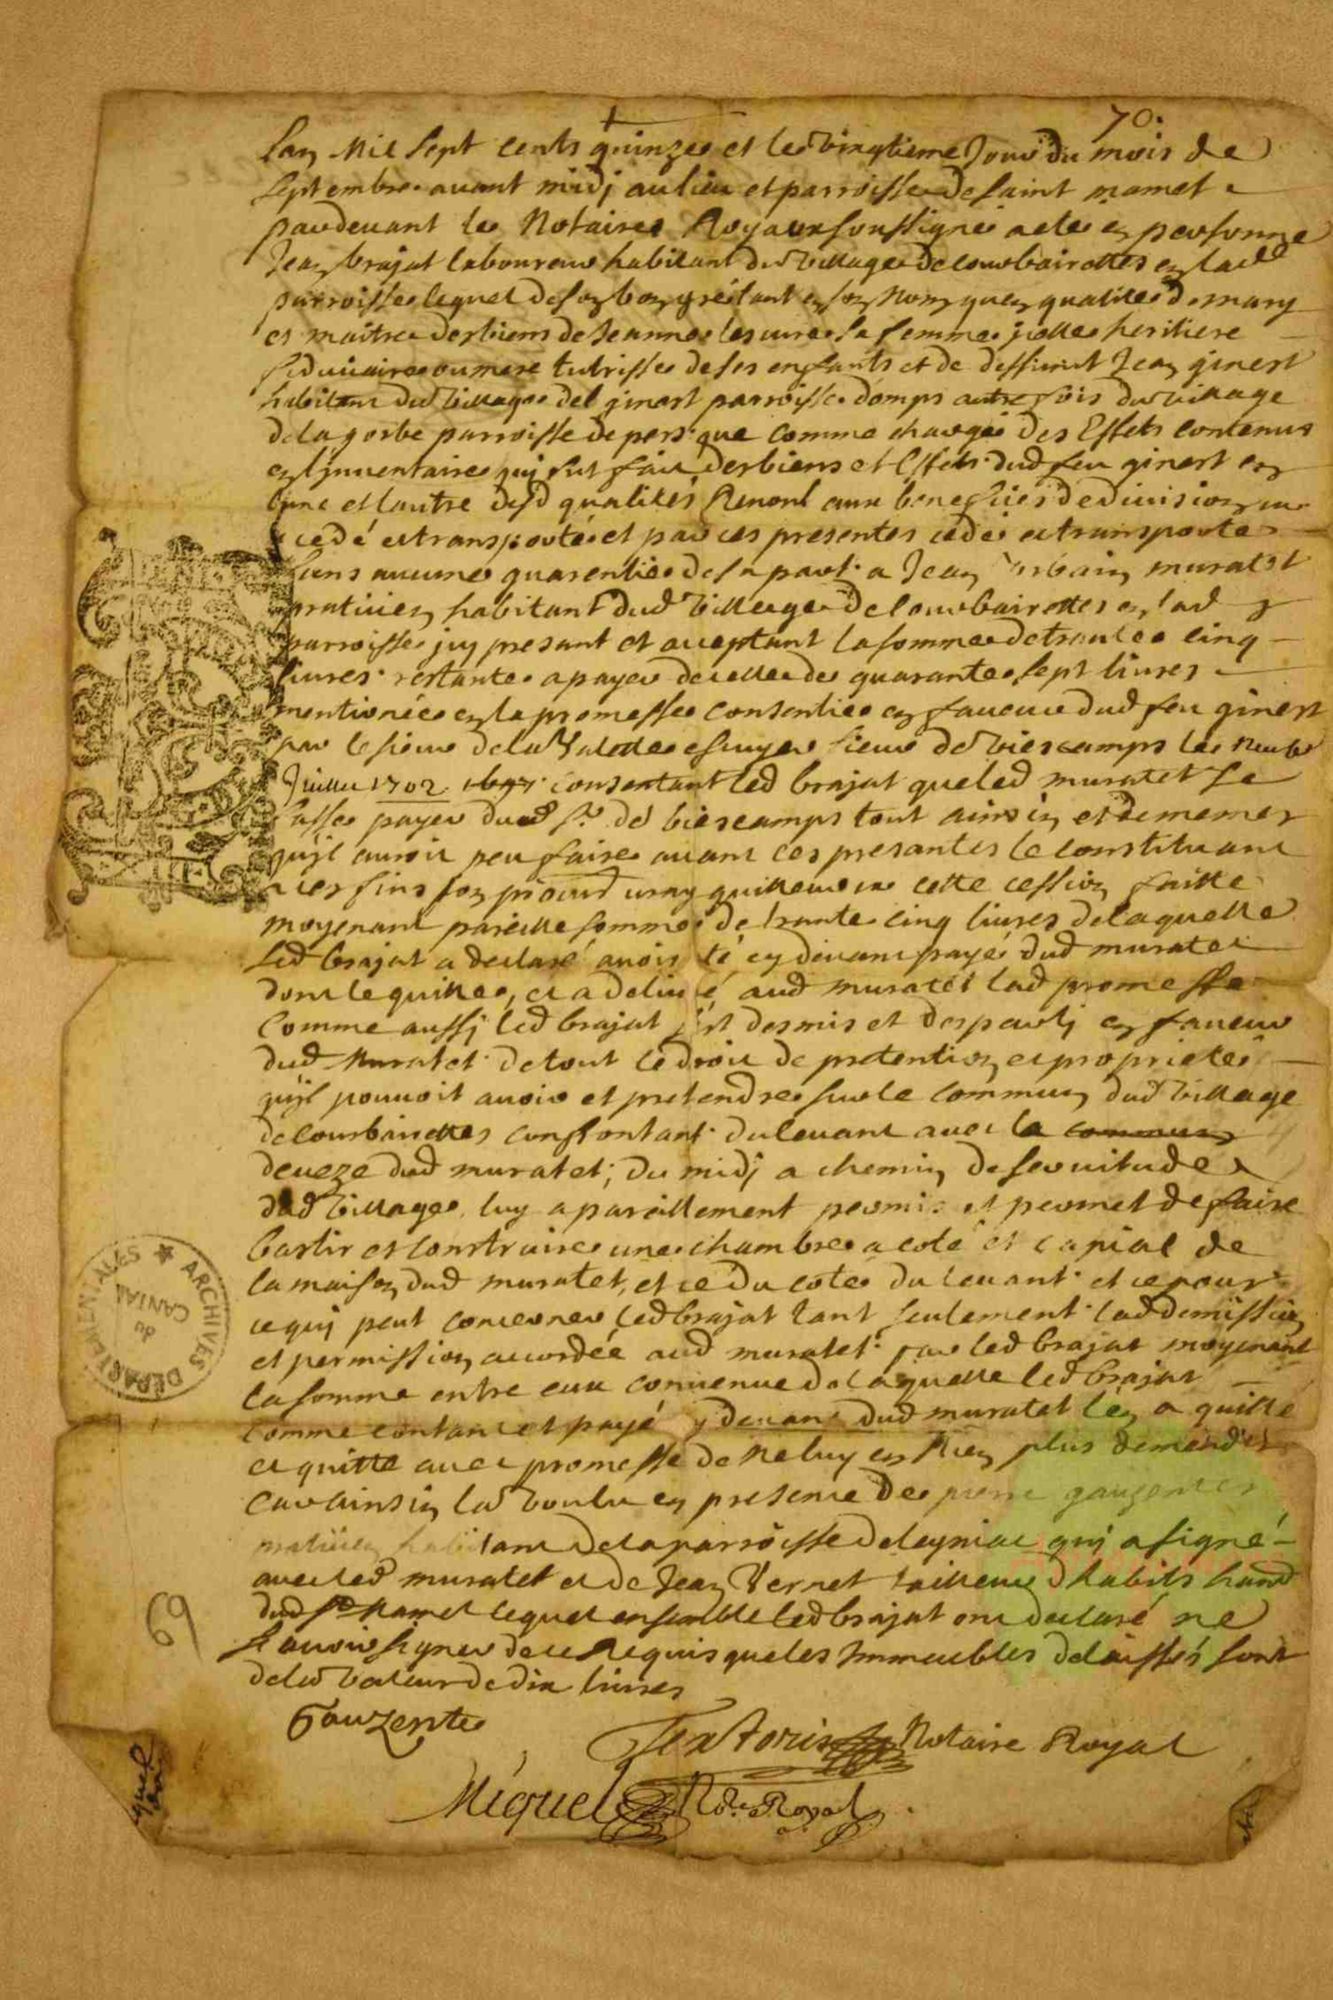 70.
Lan Mil Sept cents quinze et le vingtieme Jour du mois de
septembre avant midj au lieu et parroisse de saint mamet
pardevant le Notaire Royaux soussigné a eté en personne
Jean brajat laboureur habitant du village de lourbairettes en lad
parroisse lequel de son bon gré tant en son Nom quen qualité de mary
et maitre des biens de Jeanne lescure sa femme jcelle heritiere
fiduciaire ou mere tutrisse de ses enfants et de deffunt Jean ginest
habitant du village del ginest parroisse domps autre fois du village
de la gorbe parroisse de pers que comme chargé des Effets contenus
en linventaire quj fut fait des biens et Effets dud feu ginest en
lune et lautre desd qualités Renont aux benefices de division
cedé et transporté et par ces presentes cede et transporte
sans aucune guarentie de sa part a Jean urbain muratet
praticien habitant dud village de lourbairettes en lad
parroisse jcy presant et acceptant la somme de trante cinq
livres restante a payer de celle de quarante sept livres
mentionée en la promesse consentie en faveur dud feu ginest
par le sieur de la Valette escuyer sieur de viescamps le neuf
Juillet 1702 consentant led brajat que led muratet se
fasse payer dud sr de viescamps tout ainsin et de meme
quil auroit peu faire avant ces presantes le constituant
a ces fins son procur uray cette cession faitte
moyenant pareille somme de trante cinq livres de laquelle
led brajat a declaré avoir eté cy devant payé dud muratet
dont le quitte, et a delivré aud muratet lad promesse
Comme aussj led brajat sest desmis et despartj en faveur
dud Muratet de tout le droit de pretention et proprieté
quil pouvoit avoir et pretendre sur le commun dud village
de lourbairettes confrontant du levant avec la commun
deveze dud muratet; du midj a chemin de servitude
dud village, luy a pareillement permis et permet de faire
bastir et construire une chambre a coté et capial de
la maison dud muratet, et ce du coté du levant et ce pour
ce quj peut concerner led brajat tant seulement lad demission
et permission accordée aud muratet par led brajat moyenant
la somme entre eux convenue de laquelle led brajat
comme contant et payé cy devant dud muratet len a quitté
et quitte avec promesse de ne luy en Rien plus demander
car ainsin la voulu en presence de pierre gauzentes
praticien habitant de la parroisse de leyniac quj a signé
avec led muratet et de Jean Vernet tailleur dhabits habt
dud St Mamet lequel ensemble led brajat ont declaré ne
scavoir signer de ce Requis que les Immeubles delaissés sont
de la valeur de dix livres
Gauzentes
Textoris Notaire Royal
Miquel Nore Royal
ARCHIVES DÉPARTEMENTALES
du
CANTAL
69